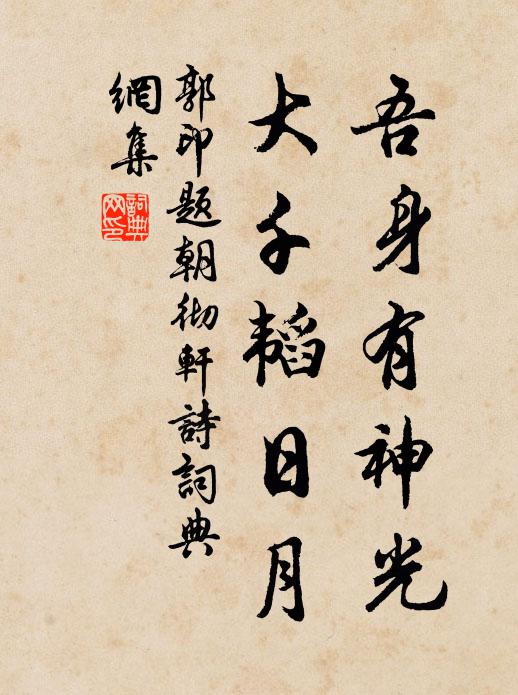 吾身有神光
大千韬日月
郭印题朝彻軒詩詞典
網集
詞典
网印